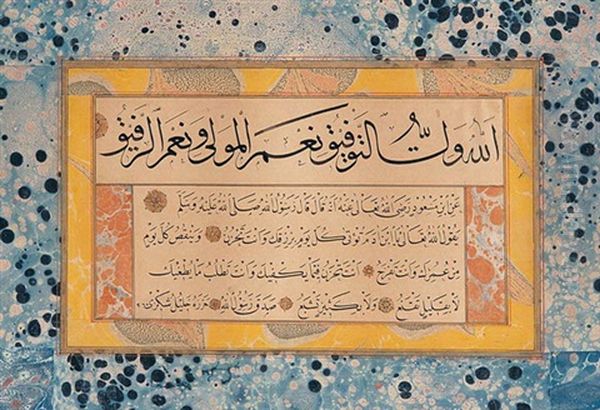 الله ولي التوفيق نعم المولى ونعم الرفيق
عن ابن مسعود رضى الله تعالى عنه انه قال قال رسول الله صلى الله عليه وسلم
يقول الله تعالى يا ابن ادم تؤتى كل يوم برزقك وانت تحزن وينقص كل يوم
من عمرك وانت تفرح انت تحزن فيما يكفيك وانت تطلب ما يطغيك
لا بقليل تقنع ولا بكثير تشبع صدق رسول الله حرره خليل شكرى